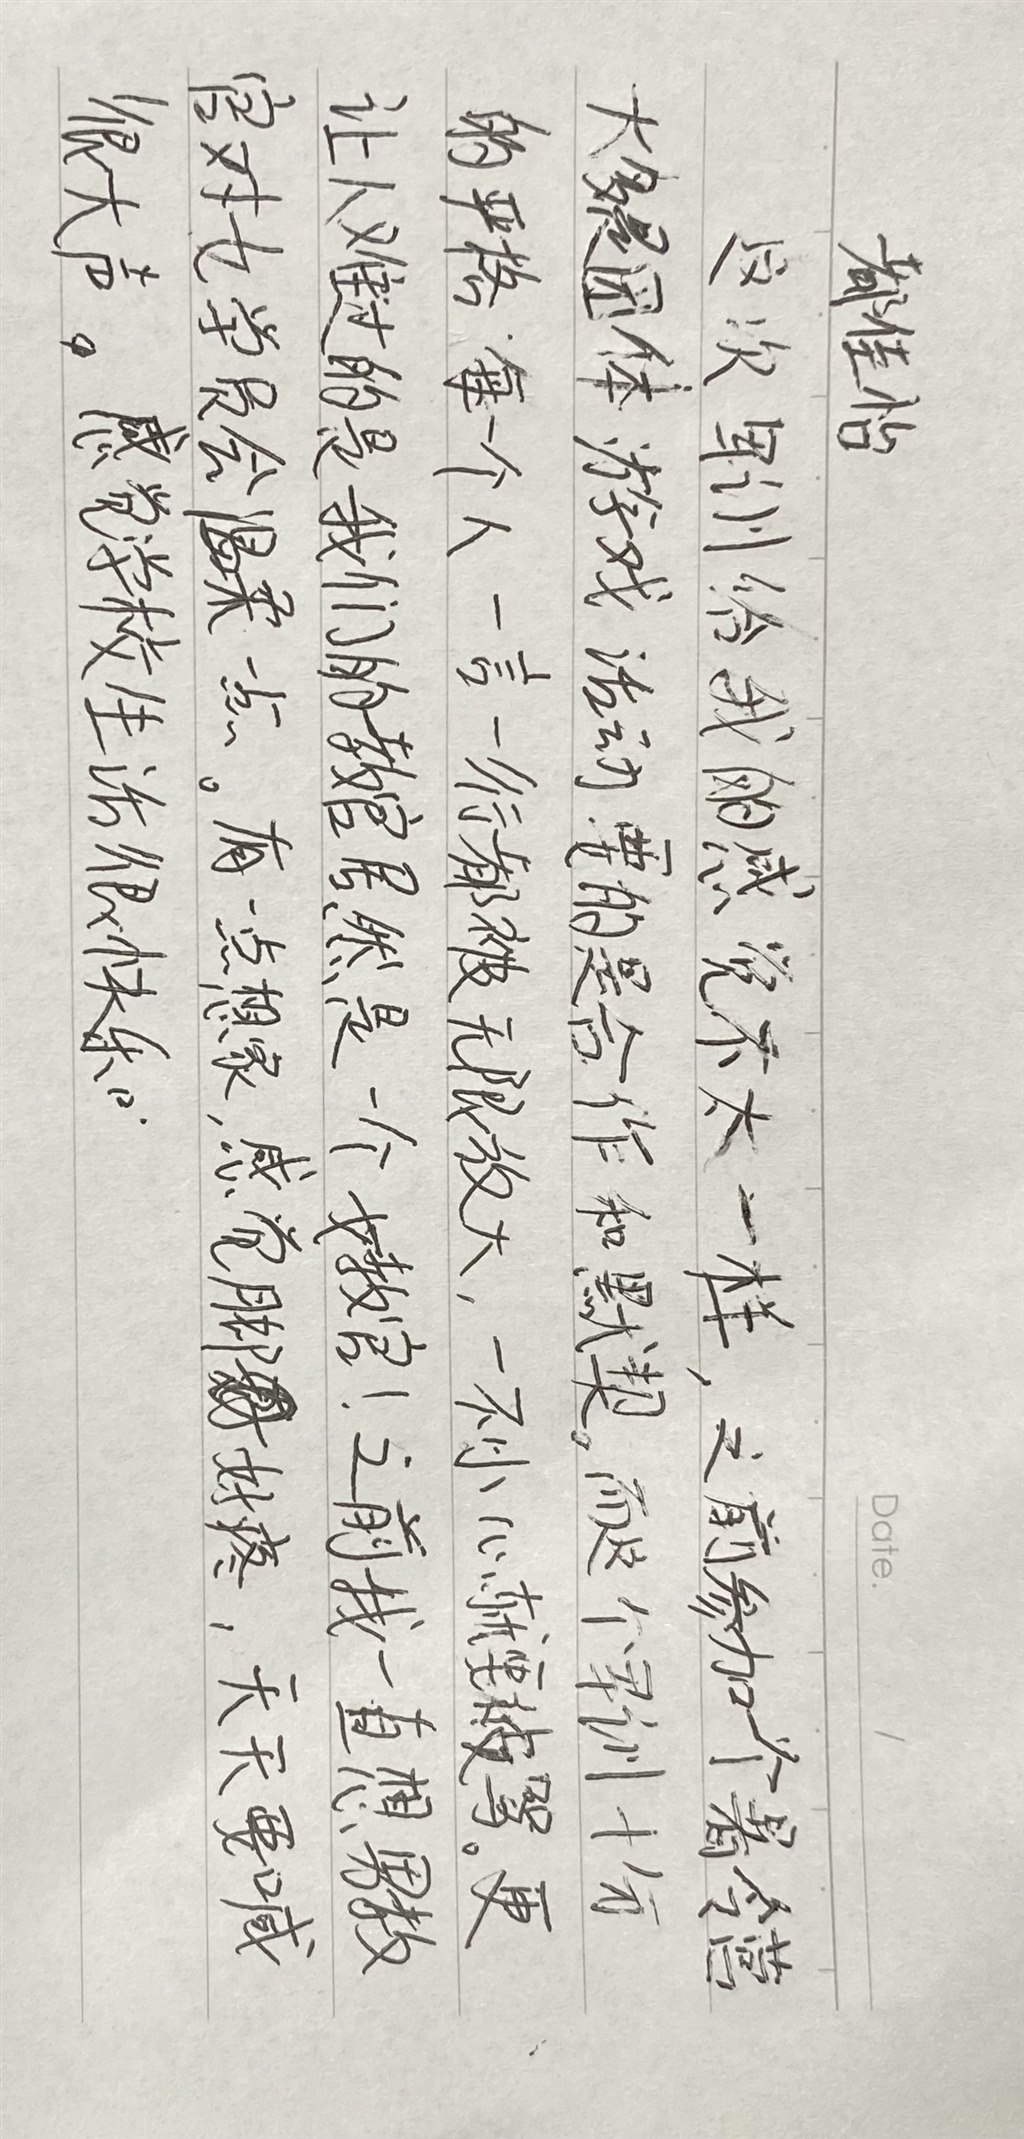 Date.
郝佳怡
这次军训给我的感觉不太一样，之前参加个夏令营
大多是团体游戏活动要的是合作和默契，而这个军训十分
的严格，每一个人一言一行都被无限放大，一不小心就要被骂。更
让人难过的是我们的教官居然是一个女教官！之前我一直想男教
官对女学员会温柔一点。有一点想家，感觉脚好疼，天天要喊
很大声。感觉学校生活很快乐。